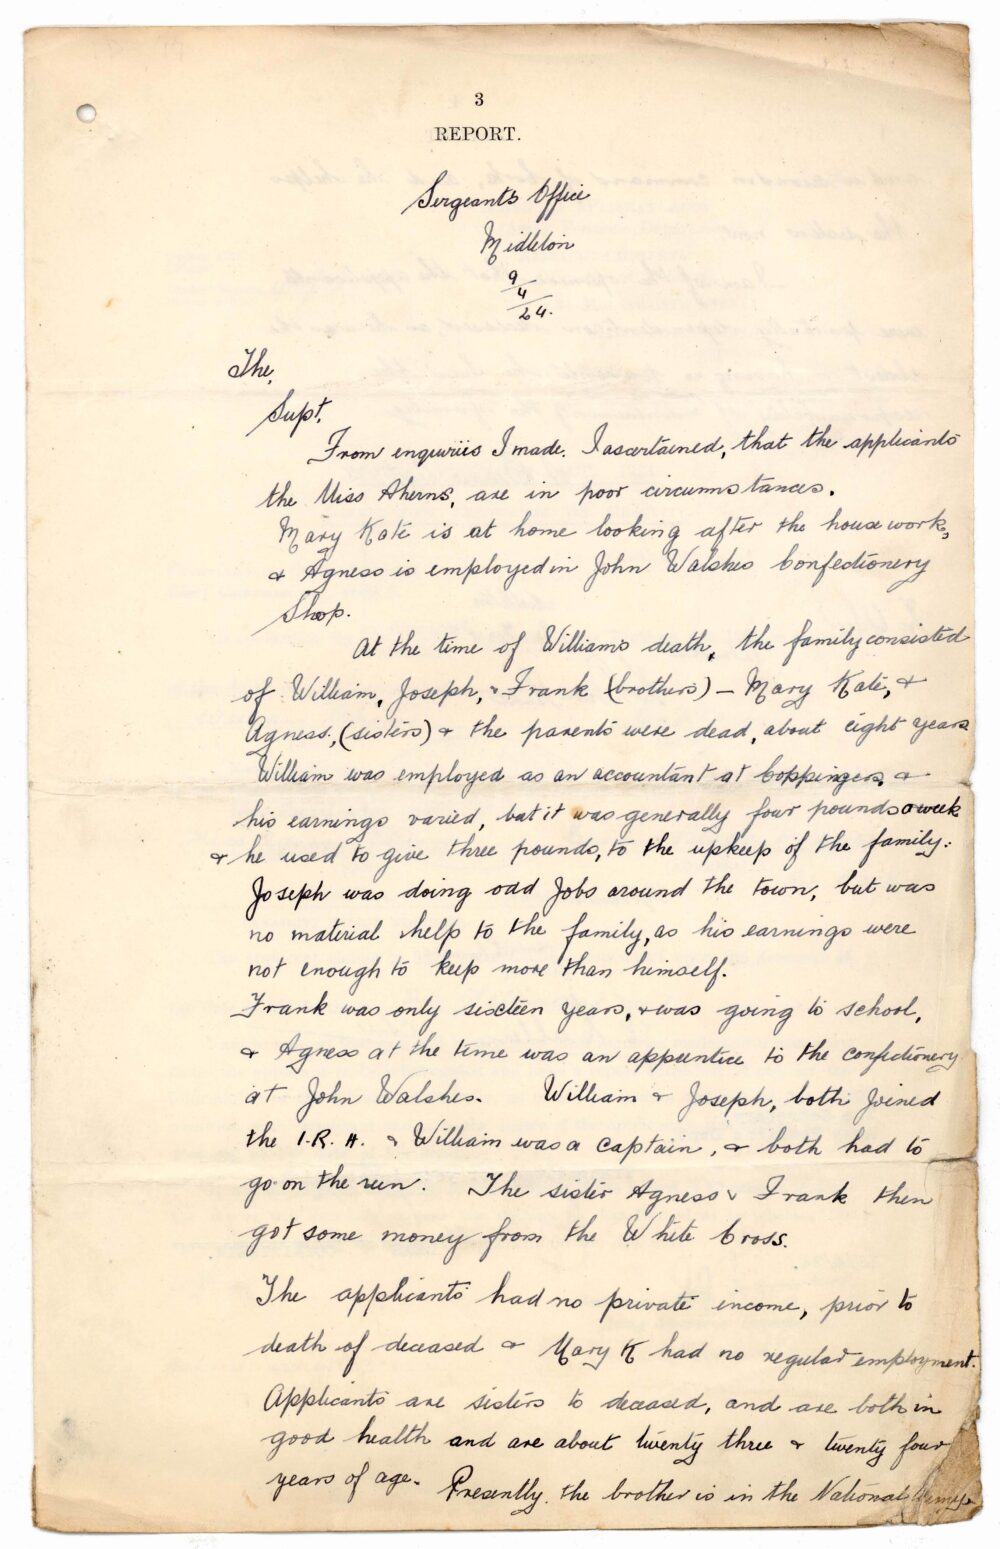 3
REPORT.
Sergeants Office
Midleton
9
4
24.
The,
Supt.
From enquiries I made. I ascertained, that the applicants
the Miss Aherns, are in poor circumstances.
Mary Kate is at home looking after the house work,
& Agness is employed in John Walshes Confectionery
Shop.
At the time of William's death, the family consisted
of William, Joseph, & Frank (brothers) – Mary Kate, &
Agness, (sisters) & the parents were dead, about eight years
William was employed as an accountant at Coppingers, &
his earnings varied, but it was generally four pounds a week
& he used to give three pounds, to the upkeep of the family.
Joseph was doing odd Jobs around the town, but was
no material help to the family, as his earnings were
not enough to keep more than himself.
Frank was only sixteen years, & was going to school,
& Agness at the time was an apprentice to the confectionery
at John Walshes. William & Joseph, both Joined
the I.R.A. & William was a captain, & both had to
go on the run. The sister Agness & Frank then
got some money from the White Cross.
The applicants had no private income, prior to
death of deceased & Mary K had no regular employment.
Applicants are sisters to deceased, and are both in
good health and are about twenty three & twenty four
years of age. Presently the brother is in the National Army.